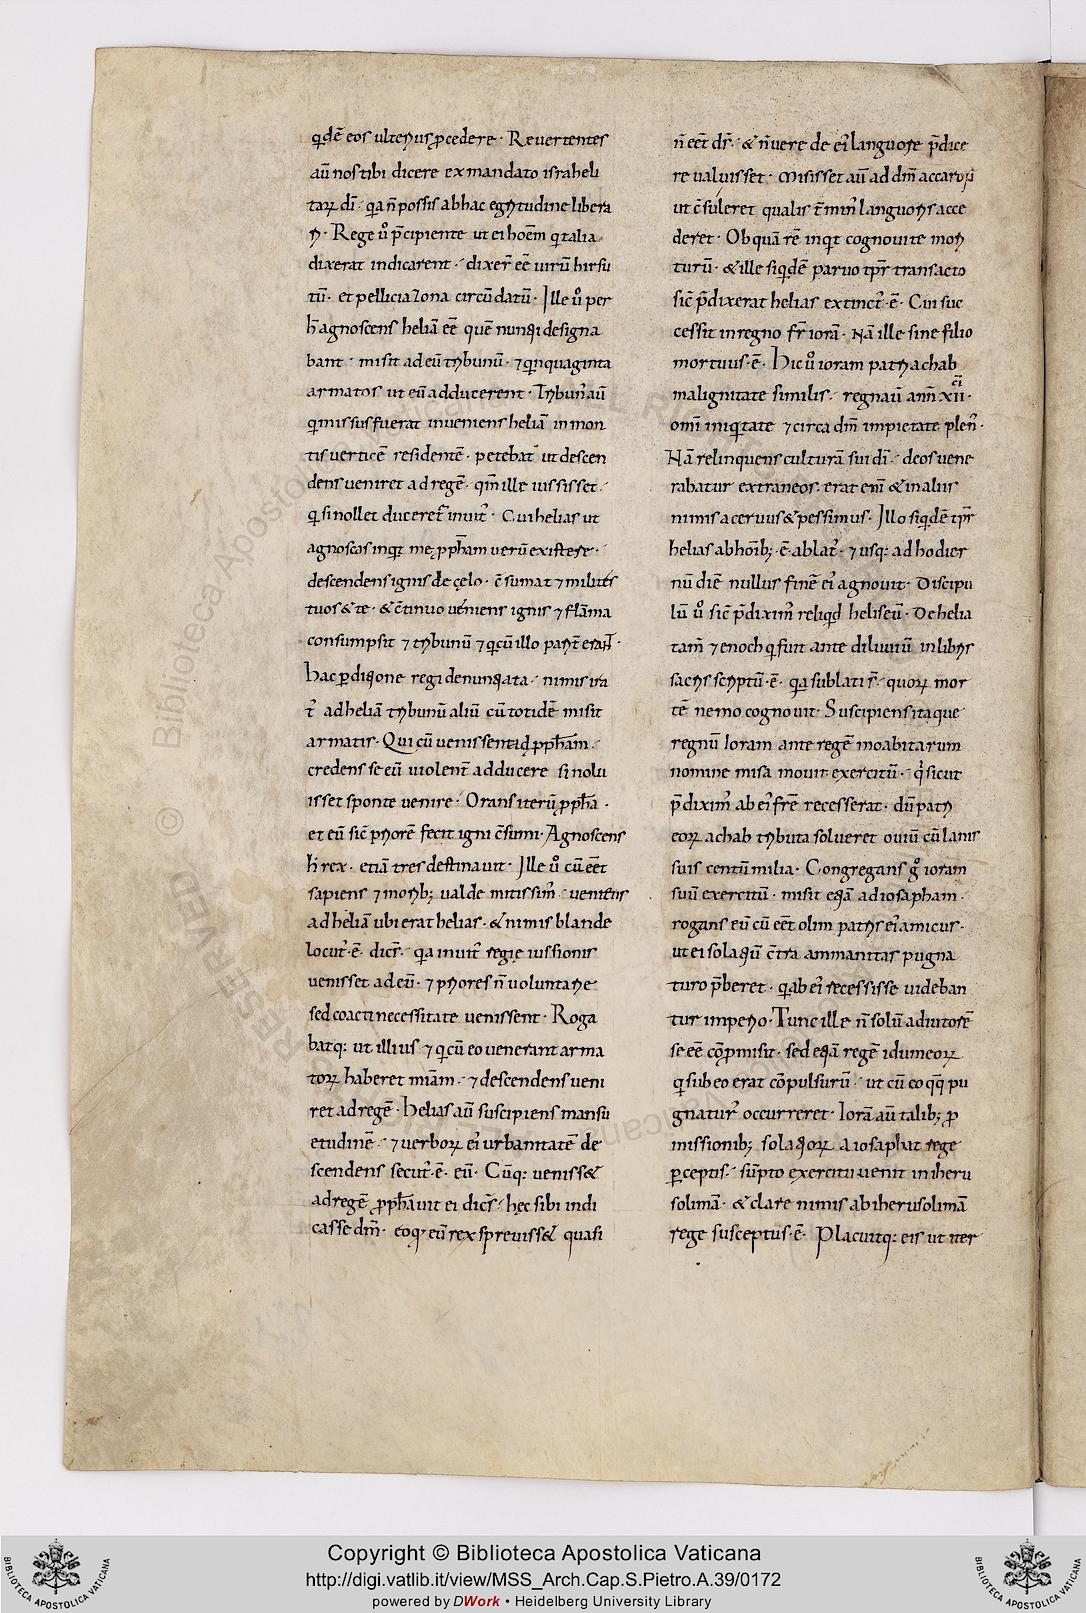 q̇dē eos ulterius ꝓcedere· Reuertentes
aū nos tibi dicere ex mandato israheli
taꝝ dī· q̇a ñ possis ab hac egritudine libera
ri· Rege u̾ p̄cipiente ut ei hoēm q̇ talia
dixerat indicarent· dixer̄ eē uirū hirsu
tū· et pellicia zona circūdatū· Ille u̾ per
h̄ agnoscens heliā eē quē nunqi designa
bant· misit ad eū tribunū· ⁊ q̇nquaginta
armatos ut eū adducerent· Tribun᾽ aū
q̇ missus fuerat inueniens heliā in mon
tis uerticē residentē· petebat ut descen
dens ueniret ad regē· qm̄ ille iussisset·
q̇ si nollet duceret᾽ inuit᾽· Cui helias ut
agnoscas inqt me ꝓph̄am uerū existere·
descendens ignis de cęlo· c̄sumat ⁊ milites
tuos & te· & c̄tinuo ueniens ignis ⁊ flāma
consumpsit ⁊ tribunū ⁊ q̇ cū illo parit᾽ erat᾽·
hac ꝑditione regi denuntiata· nimis ira
t᾽ ad heliā tribunū aliū cū totidē misit
armatis· Qui cū uenissent ad ꝓph̄am·
credens se eū uiolent᾽ adducere si nolu
isset sponte uenire· Orans iterū ꝓph̄a·
et eū sic̄ priorē fecit igni c̄sumi· Agnoscens
h̄ rex· etiā tres destinauit· Ille u̾ cū eēt
sapiens ⁊ morib; ualde mitissim᾽· ueniens
ad heliam ubi erat helias· & nimis blande
locut᾽·ē· dic̄s· q̇a inuit᾽ regie iussionis
uenisset ad eū· ⁊ priores ñ uoluntarie
sed coacti necessitate uenissent· Roga
batq: ut illius ⁊ q̇ cū eo uenerant arma
toꝝ haberet mīam· ⁊ descendens ueni
ret ad regē· Helias aū suscipiens mansu
etudinē· ⁊ uerboꝝ ei᾽ urbanitatē de
scendens secut᾽·ē· eū· Cūq: uenisset
ad regē ꝓph̄auit ei dic̄s· hec sibi indi
casse dm̄· eo q̇ eū rex spreuiss& quasi
ñ eēt ds̄· & ñ uere de ei᾽ languore p̄dice
re ualuisset· misisset aū ad dm̄ accaron
ut c̄suleret qualis t̄min᾽ languoris acce
deret· Ob quā rē inqt cognouite mori
turū· & ille siq̇dē paruo tp̄r transacto
sic̄ p̄dixerat helias extinct᾽·ē· Cui suc
cessit in regno fr̄ iorā· Nā ille sine filio
mortuus·ē· Hic u̾ ioram patri achab
malignitate similis· regnauī ann̄ xii ci·
omī iniq̇tate ⁊ circa dm̄ impietate plen᾽·
Nā relinquens culturā sui dī· deos uene
rabatur extraneos· erat enī & in aliis
nimis aceruus & pessimus· Illo siq̇dē tp̄r
helias ab hoīb;·ē·ablat᾽· ⁊ usq: ad hodier
nū diē nullus finē ei᾽ agnouit· Discipu
lū u̾ sic̄ p̄diximꝰ reliqd heliseū· De helia
tam̄ ⁊ enoch q̇ fuit ante diluuiū in libris
sacris scriptū·ē· q̇a sublati s᾽· quoꝝ mor
tē nemo cognouit· Suscipiens itaque
regnū Ioram ante regē moabitarum
nomine misa mouit exercitū· q̇ sicut
p̄diximꝰ ab ei᾽ frē recesserat· dū patri
eoꝝ achab tributa solueret ouiū cū lanis
suis centū milia· Congregans g᾽ ioram
suū exercitū· misit etiā ad iosapham·
rogans eū cū eēt olim patris ei᾽ amicus·
ut ei solatiū c̄tra ammanitas pugna
turo p̄beret· q̇ ab ei᾽ recessisse uideban
tur imperio· Tunc ille ñ solū adiutorē
se eē cōpmisit· sed etiā regē idumeoꝝ
q̇ sub eo erat cōpulsurū· ut cū eo qq̇ pu
gnatur᾽ occurreret· Iorā aū talib; ꝓ
missionib; solatioꝝ a iosaphat rege
ꝑceptis· sūpto exercitu uenit in iheru
solimā· & clare nimis ab iherusolimā
rege susceptus·ē· Placuitq: eis ut iter
Copyright © Biblioteca Apostolica Vaticana
http://digi.vatlib.it/view/MSS_Arch.Cap.S.Pietro.A.39/0172
powered by DWork • Heidelberg University Library